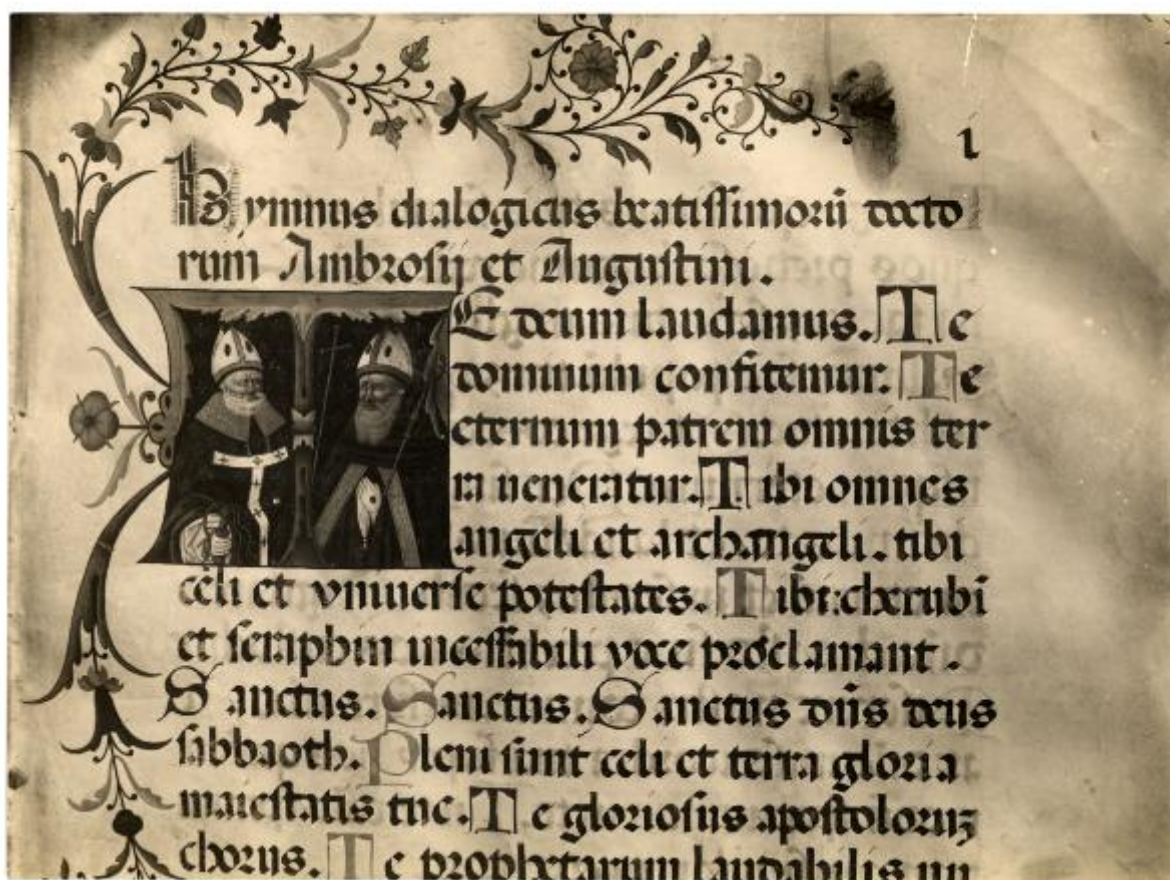 1
Hymnus dialogicus beatissimorū docto
rum Ambrosij et Augustini.
TE deum laudamus. Te
dominum confitemur. Te
eternum patrem omnis ter
ra ueneratur. Tibi omnes
angeli et archangeli. tibi
celi et vniuerse potestates. Tibi: cherubī
et seraphin incessabili voce proclamant.
Sanctus. Sanctus. Sanctus dn̄s deus
sabbaoth. Pleni sunt celi et terra gloria
maiestatis tue. Te gloriosus apostoloruꝫ
chorus. Te prophetarum laudabilis nu